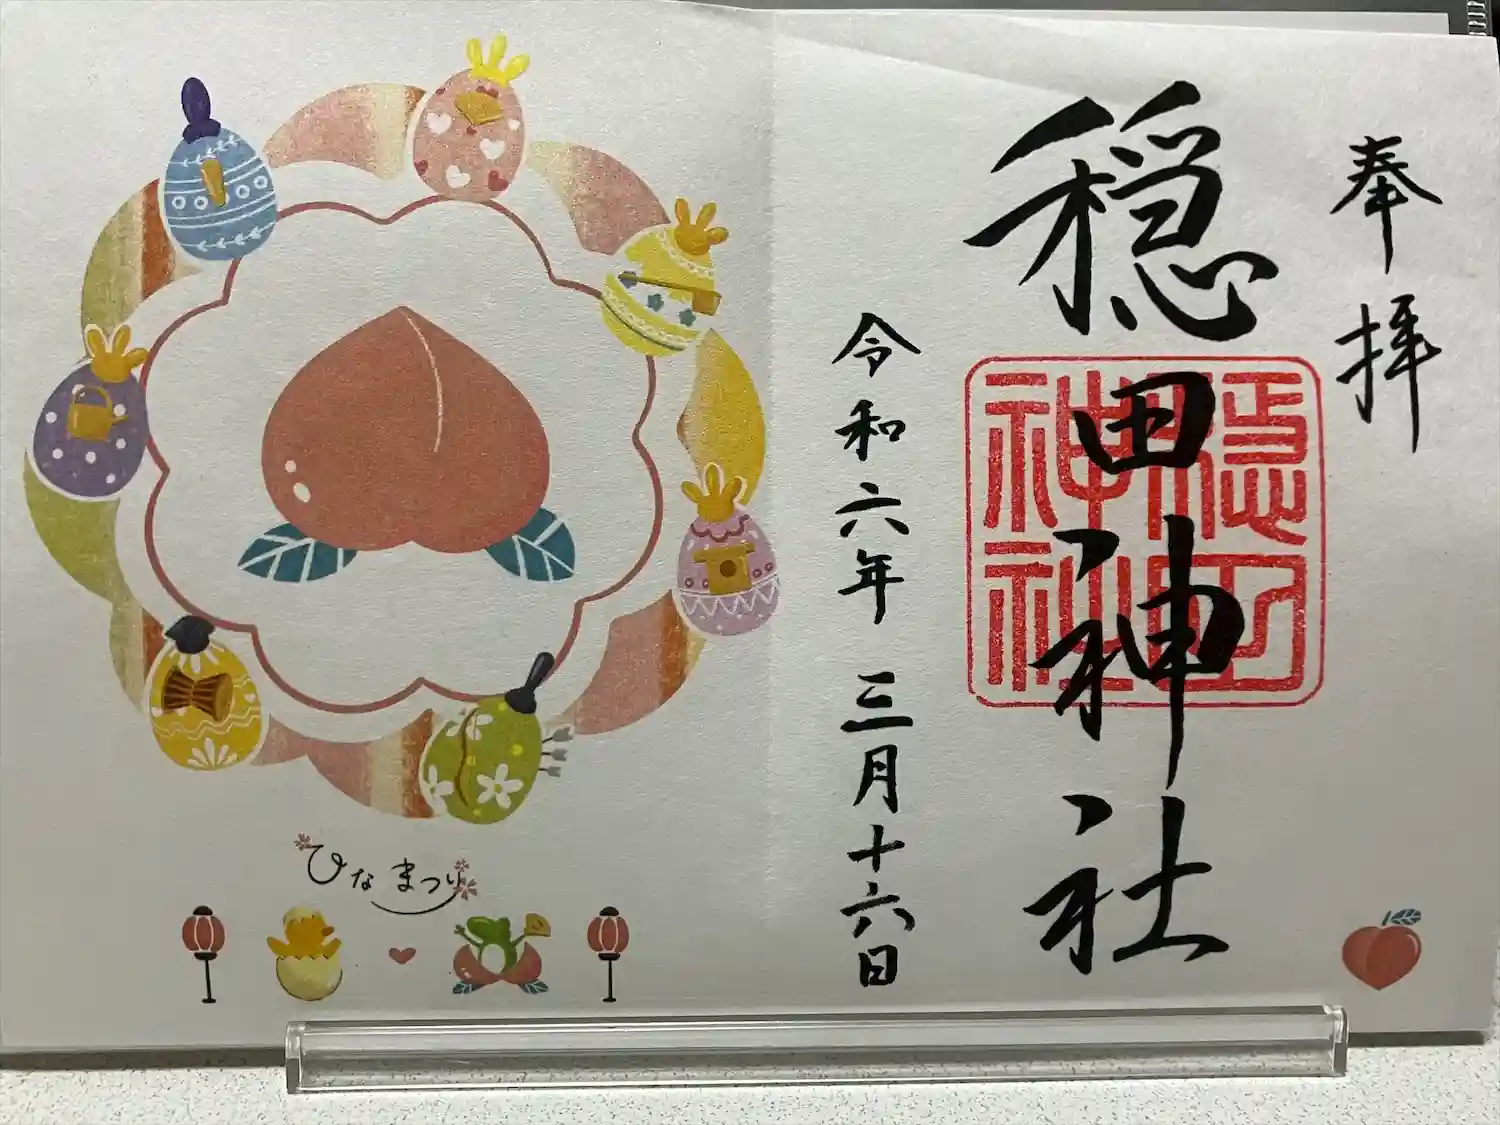 奉拝
穏田神社
穏田
神社
令和六年 三月十六日
ひなまつり